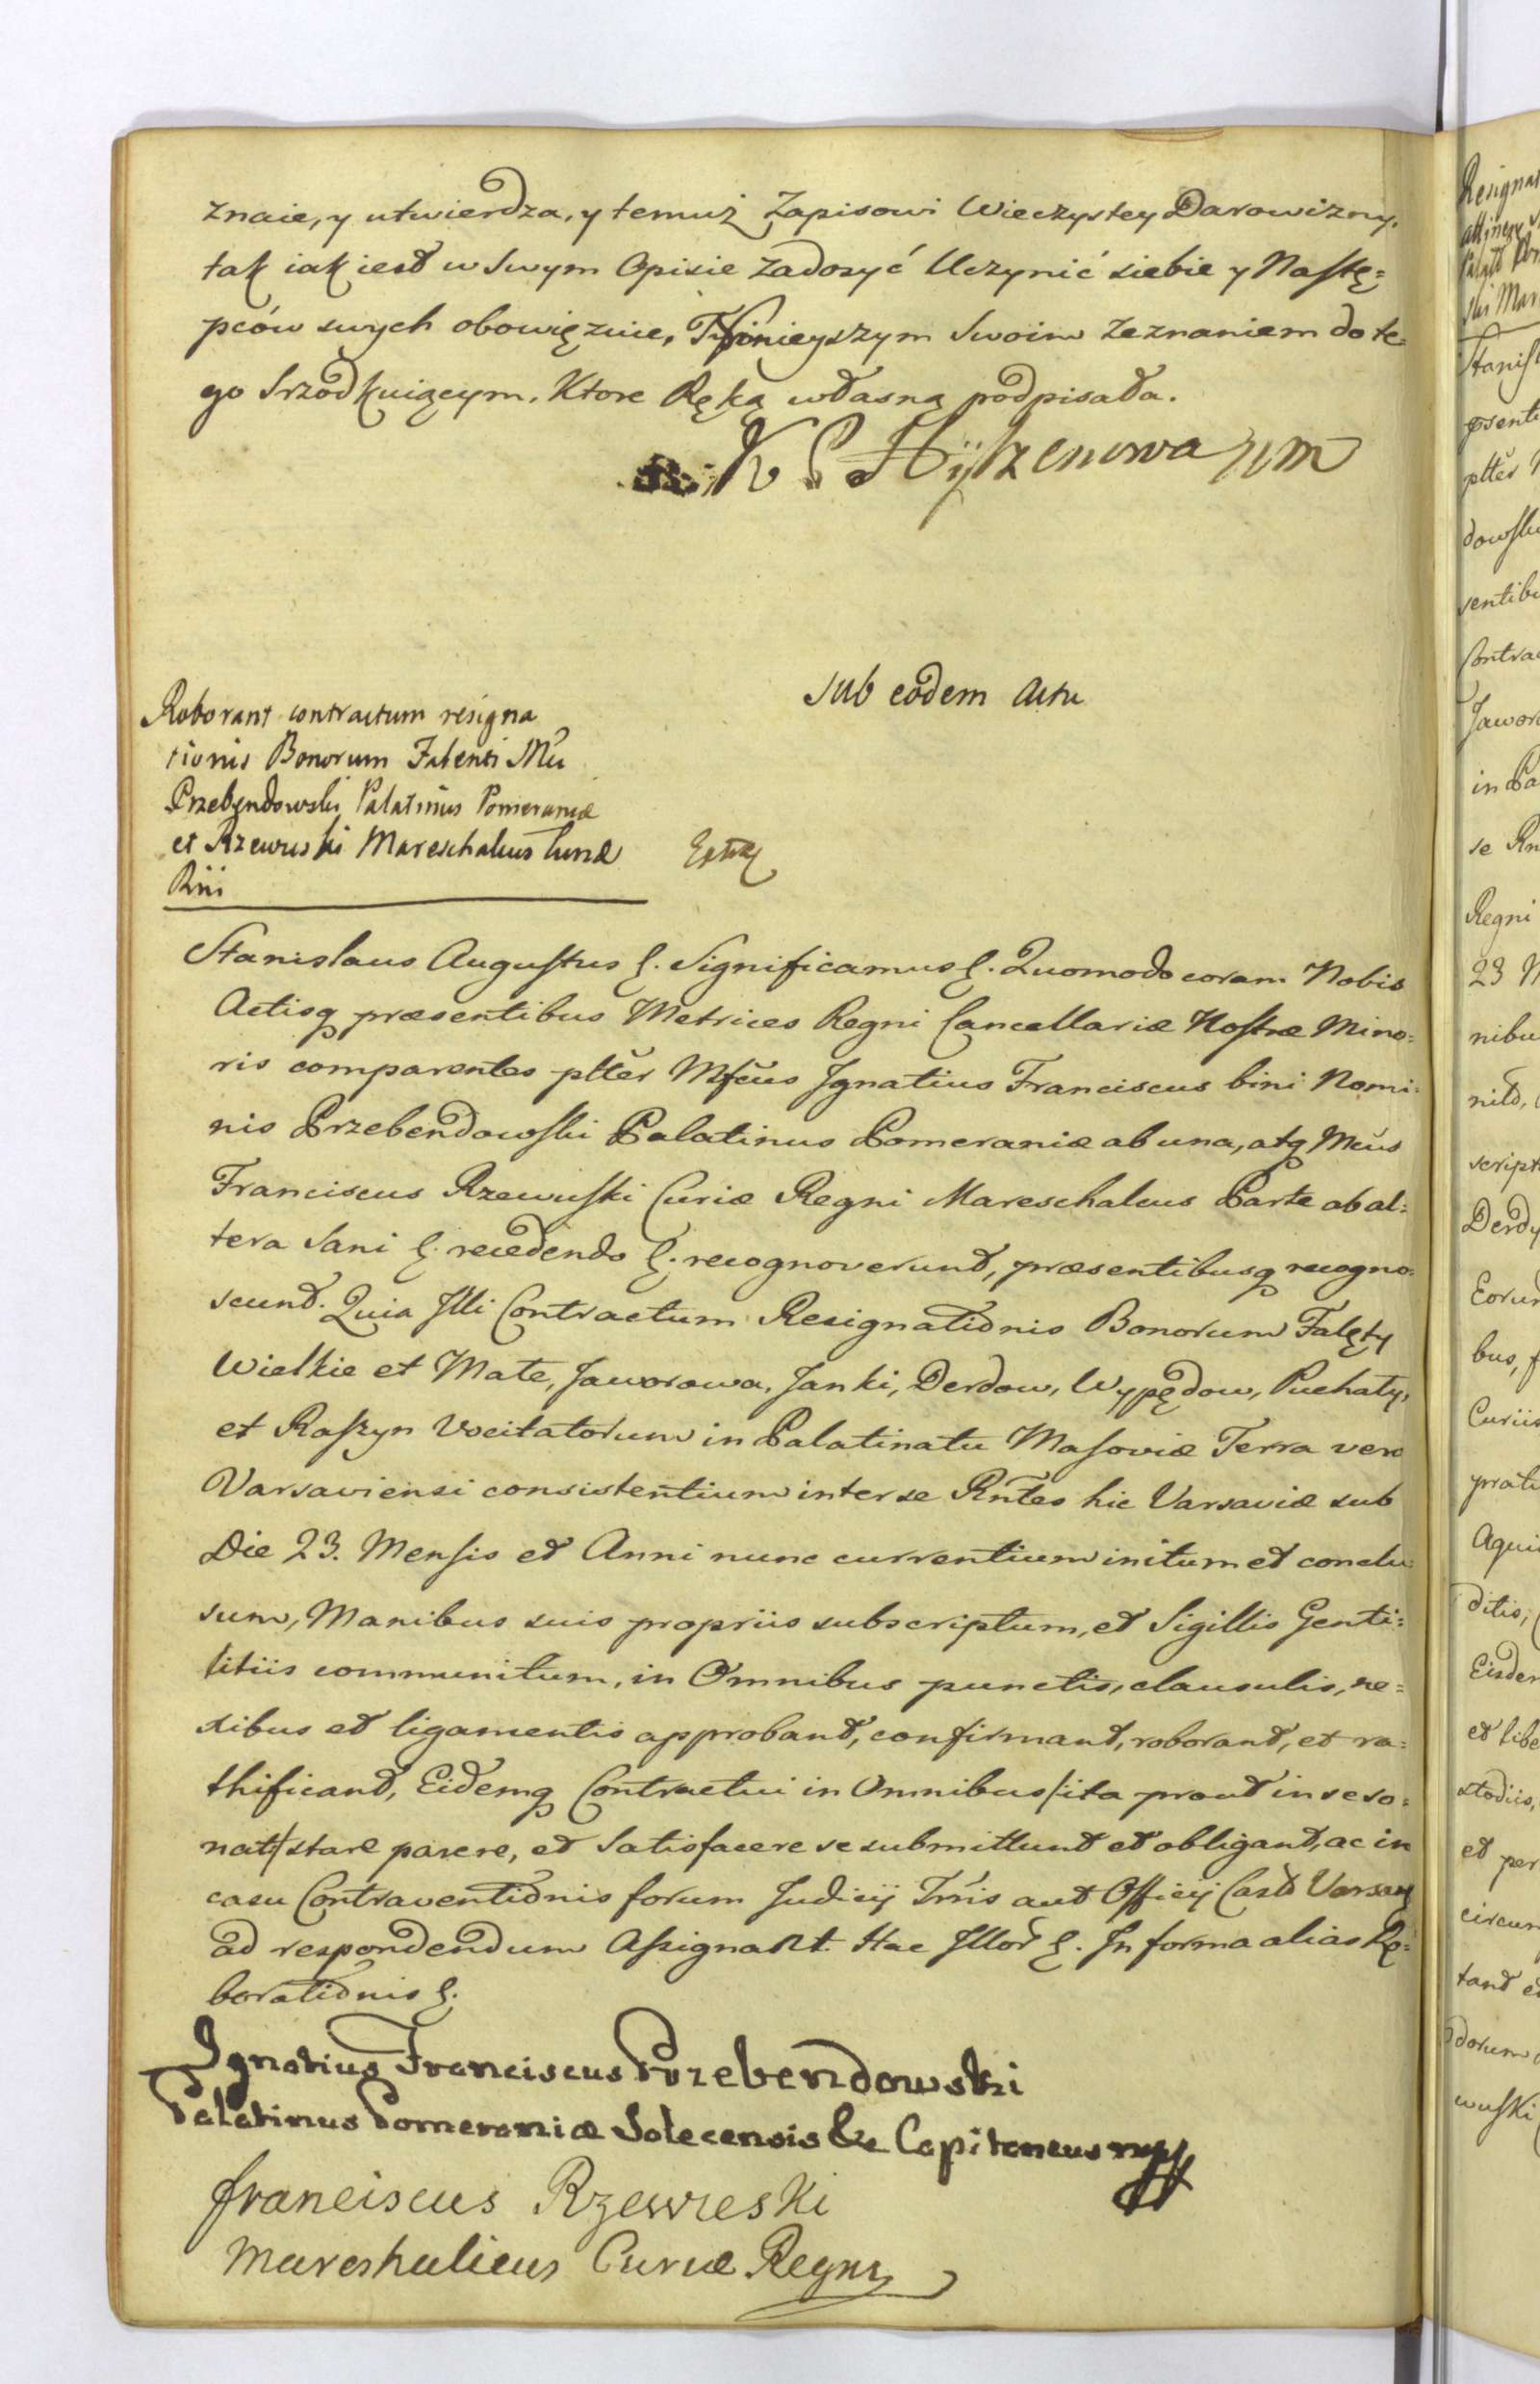 znaie, y utwierdza, y temuż Zapisowi Wieczystey Darowizny,
tak iak iest w Swym Opisie zadosyć Uczynić siebie y Nastę=
pców swych obowięzuie, Ninieyszym Swoim Zeznaniem do te=
go Srzodkuiącym. Ktore Ręką własną podpisała.
K Hÿlzenowa mp
Sub eodem Actu
Roborant contractum resigna
tionis Bonorum Falenti Mci
Przebendowski Palatinus Pomeraniæ
et Rzewuski Mareschalcus Curiæ
Rni
Stanislaus Augustus &. Significamus &. Quomodo coram Nobis
Actisq præsentibus Metrices Regni Cancellariæ Nostræ Mino=
ris comparentes plter Mfcus Ignatius Franciscus bini Nomi=
nis Przebendowski Palatinus Pomeraniæ ab una, atq Mcus
Franciscus Rzewuski Curiæ Regni Mareschalcus Parte ab al=
tera Sani &. recedendo &. recognoverunt, præsentibusq recogno=
scunt. Quia Illi Contractum Resignationis Bonorum Falęty
Wielkie et Małe, Jaworowa, Janki, Derdow, Wypędow, Puchały,
et Raszyn Vocitatorum in Palatinatu Masoviæ Terra vero
Varsaviensi consistentium inter se Rntes hic Varsaviæ sub
Die 23. Mensis et Anni nunc currentium initum et conclu=
sum, Manibus suis propriis subscriptum, et Sigillis Genti=
litiis communitum, in Omnibus punctis, clausulis, ne=
xibus et ligamentis approbant, confirmant, roborant, et ra=
thificant, Eidemq Contractui in Omnibus /ita prout in se so=
nat/ stare parere, et Satisfacere se submittunt et obligant, ac in
casu Contraventionis forum Judicij Trnis aut Officij Castr Varsav
ad respondendum Assignant. Hac Illor &. In forma alias Ro=
borationis &.
Ignatius Franciscus Przebendowski
Palatinus Pomeraniæ Solecensis & Capitaneus mpp
Franciscus Rzewuski
Mareshalicus Curiæ Regni